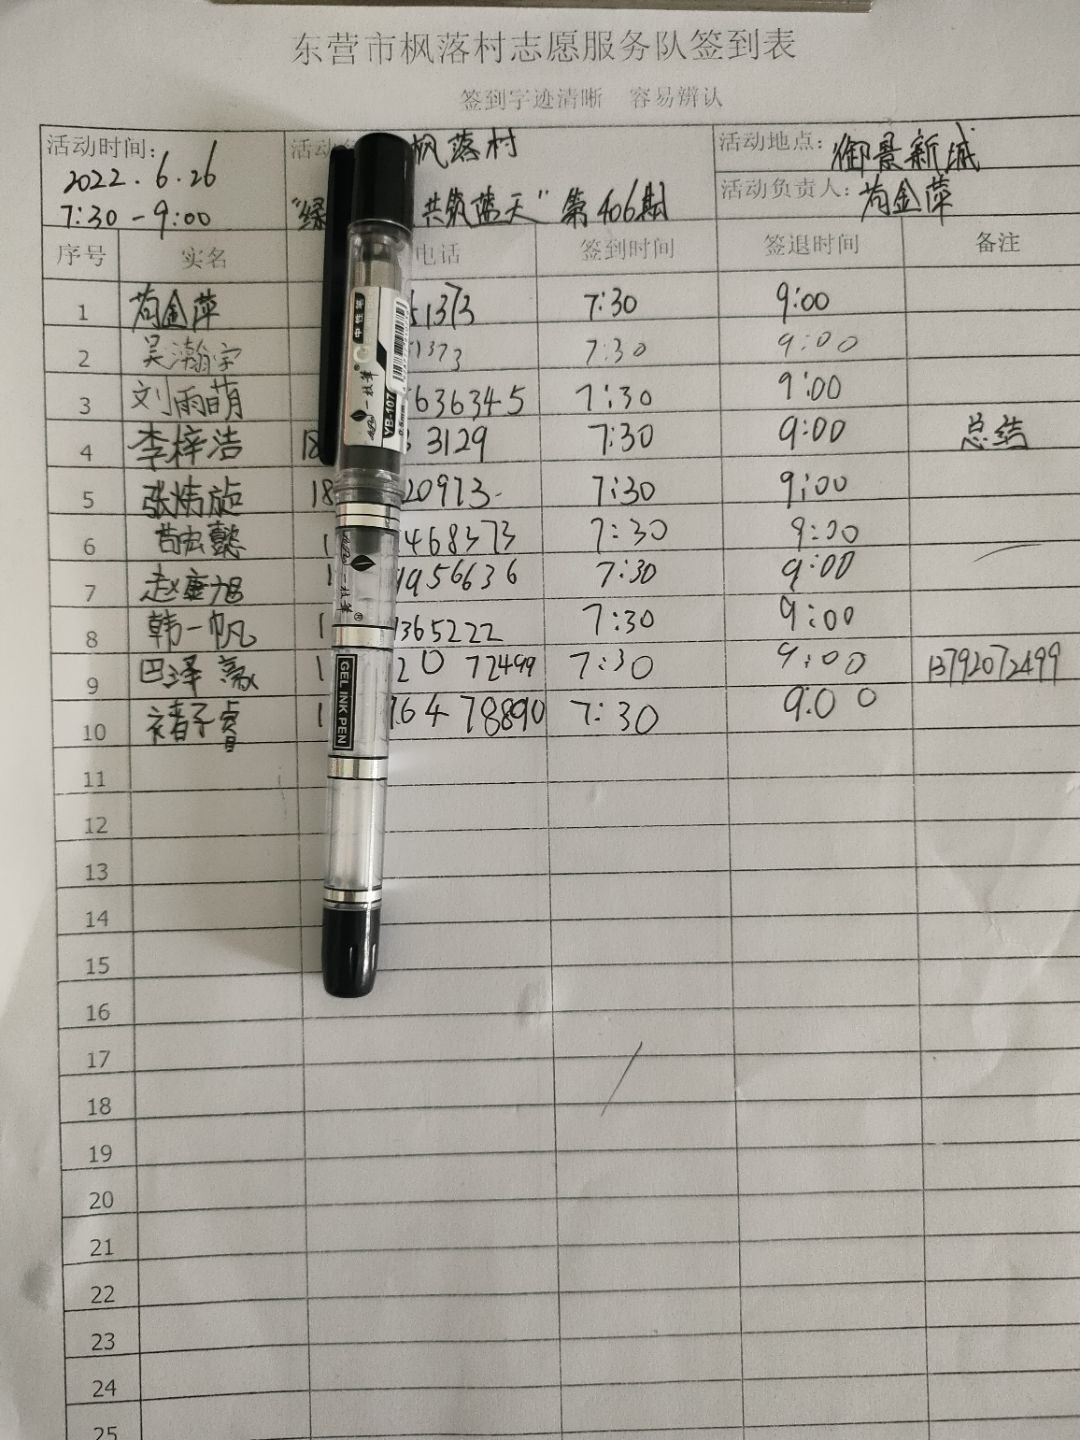 东营市枫落村志愿服务队签到表
签到字迹清晰 容易辨认
活动时间: 2022.6.26
7:30-9:00
活动 枫落村
"绿 共筑蓝天"第406期
活动地点: 御景新城
活动负责人: 苟金萍
序号 实名 电话 签到时间 签退时间 备注
1 苟金萍 51373 7:30 9:00
2 吴瀚宇 1373 7:30 9:00
3 刘雨萌 636345 7:30 9:00
4 李梓洁 18 3129 7:30 9:00 总结
5 张炜旋 18 20973 7:30 9:00
6 苟宏懿 1 468373 7:30 9:30
7 赵重旭 1 1956636 7:30 9:00
8 韩一帆 1 1365222 7:30 9:00
9 巴泽 1 20 72499 7:30 9:00 13792072499
10 褚子睿 1 764 78890 7:30 9:00
11
12
13
14
15
16
17
18
19
20
21
22
23
24
25
中性笔
一枝笔®
YB-107
0.5mm
一枝笔®
GEL INK PEN